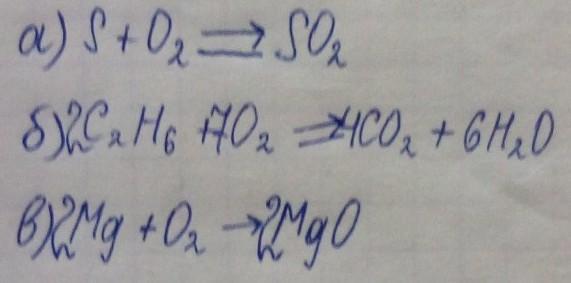 а) S + O₂ ⇉ SO₂
б) 2C₂H₆ + 7O₂ ⇉ 4CO₂ + 6H₂O
в) 2Mg + O₂ → 2MgO